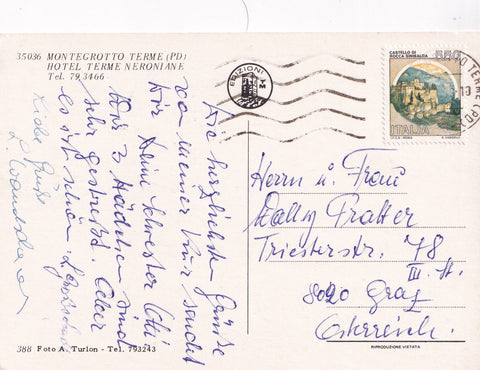 35036 MONTEGROTTO TERME (PD)
HOTEL TERME NERONIANE
Tel. 79 3466
EDIZIONI
CASTELLO DI
ROCCA SINIBALDA
550
ITALIA
TERME (PD)
19
Die herzlichsten Grüsse
von meiner Kur sendet
Dir Deine Schwester
Wir 3 Mädchen sind
sehr gestresst. Aber
es ist schön
Liebe Grüße
Herrn u. Frau
Wally Pratter
Triesterstr. 78
III. St.
8020 Graz
Österreich.
388 Foto A. Turlon - Tel. 793243
RIPRODUZIONE VIETATA